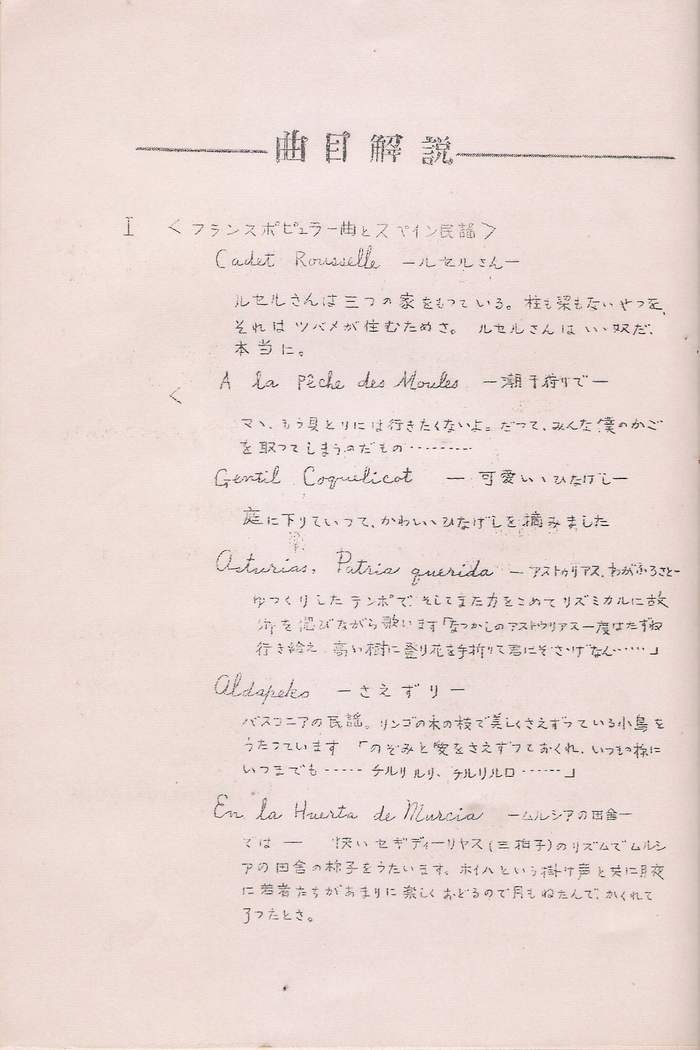 曲目解説
I <フランスポピュラー曲とスペイン民謡>
Cadet Rousselle ールセルさんー
ルセルさんは三つの家をもっている。柱も梁もないやつを、
それはツバメが住むためさ。ルセルさんはいゝ奴だ、
本当に。
<
A la Pêche des Moules ー潮干狩りでー
マヽ、もう貝とりには行きたくないよ。だって、みんな僕のかご
を取ってしまうのだもの………
Gentil Coquelicot ー可愛いゝひなげしー
庭に下りていって、かわいゝひなげしを摘みました
Asturias, Patria querida ーアストゥリアス、わがふるさとー
ゆっくりしたテンポで、そしてまた力をこめてリズミカルに故
郷を偲びながら歌います「なつかしのアストゥリアス一度はたずね
行き給え 高い樹に登り花を手折りて君にぞさゝげなん……」
Aldapeko ーさえずりー
バスコニアの民謡。リンゴの木の枝で美しくさえずっている小鳥を
うたっています 「のぞみと愛をさえずっておくれ、いつもの様に
いつまでも…… チルリルリ、チルリルロ……」
En la Huerta de Murcia ームルシアの田舎ー
では ー 快いセギディーリヤス(三拍子)のリズムでムルシ
アの田舎の様子をうたいます、ホイハという掛け声と共に月夜
に若者たちがあまりに楽しくおどるので月もねたんで、かくれて
了ったとさ。